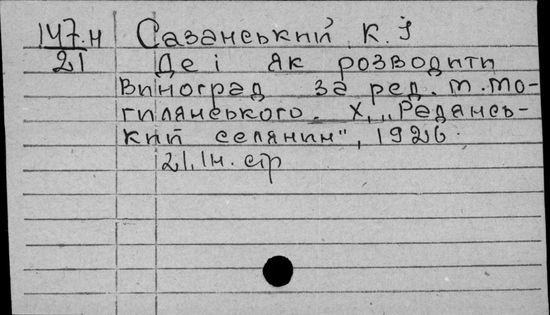 147.н Сазанський К. І
21 Де і як розводити
виноград за ред. м. мо-
гилянського. Х, „Радянсь-
кий селянин", 1926.
21, Iн. стр